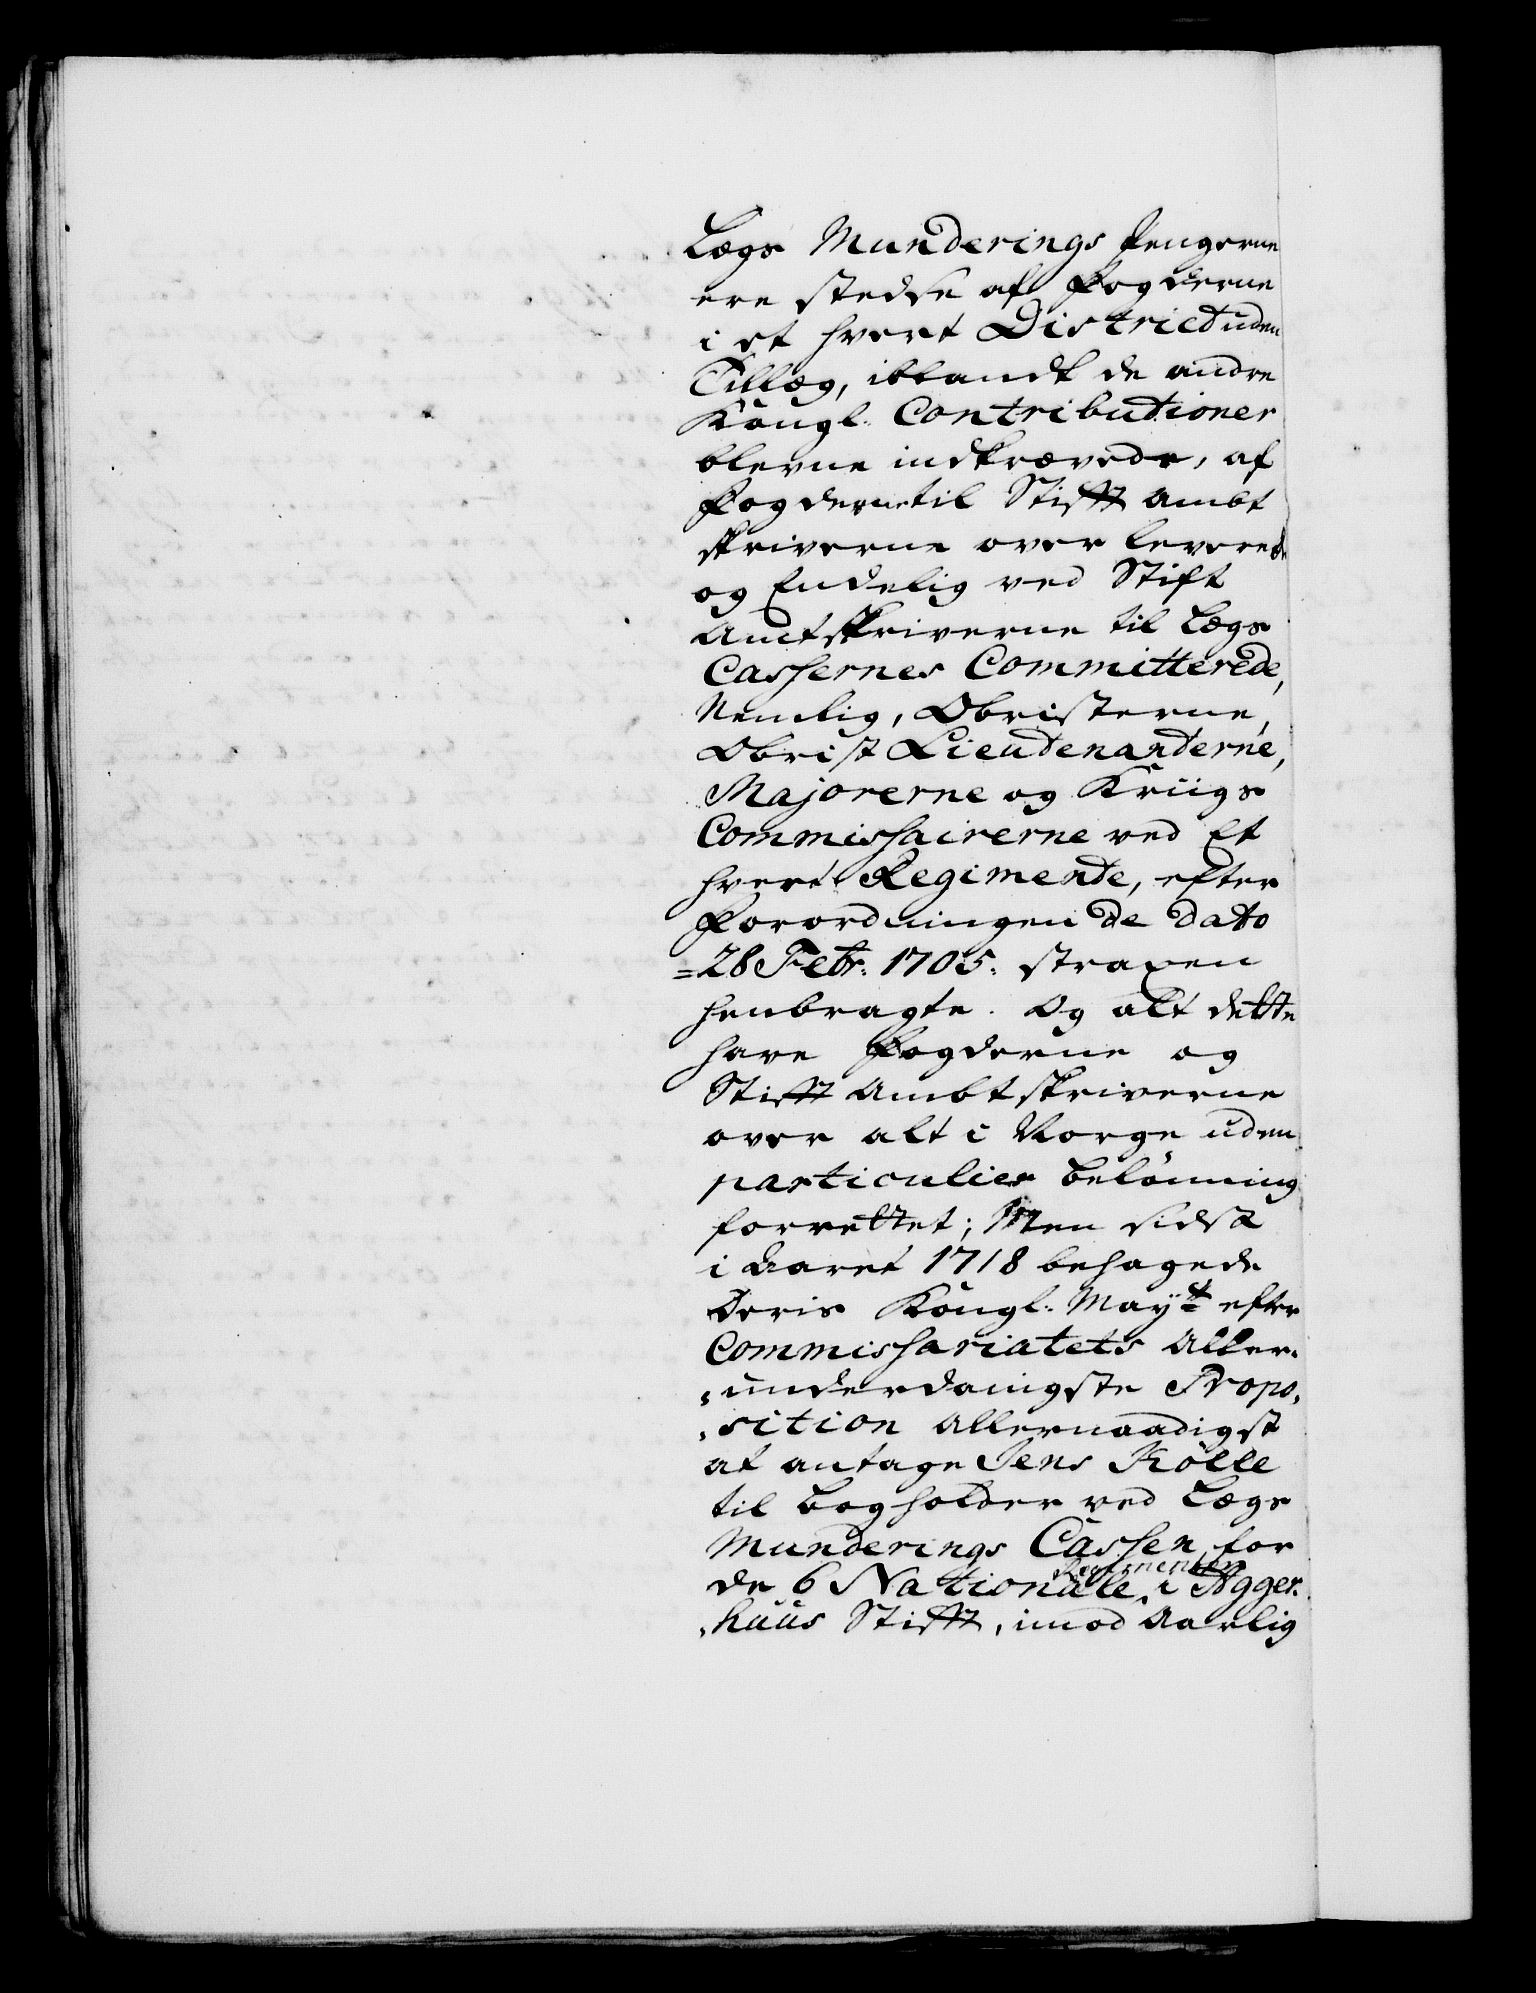 Lægs Munderings Pengerne
ere stedse af Fogderne
i et hvert District uden
Tillæg, iblandt de andre
Kongl. Contributioner
blevne indkrævede, af
Fogderne til Stifft Ambt
skriverne over leverede
og Endelig ved Stift
Amtskriverne til Lægs
Cassernes Committerede,
Nemlig, Obristerne,
Obrist Lieutenanterne,
Majorerne og Kriigs
Commissairerne ved Et
hvert Regimente, efter
Forordningen de dato
28 Febr: 1705. straxen
henbragte. Og alt dette
have Fogderne og
Stifft Ambtskriverne
over alt i Norge uden
particulier belönning
forrettet; Men sidst
i Aaret 1718 behagede
Deris Kongl. Mayt efter
Commissariatets Aller-
underdanigste Propo-
sition allernaadigst
at antage Jens Kölle
til bogholder ved Lægs
Munderings Cassen for
de 6 Nationale Regimenter i Agger-
huus Stifft, imod Aarlig